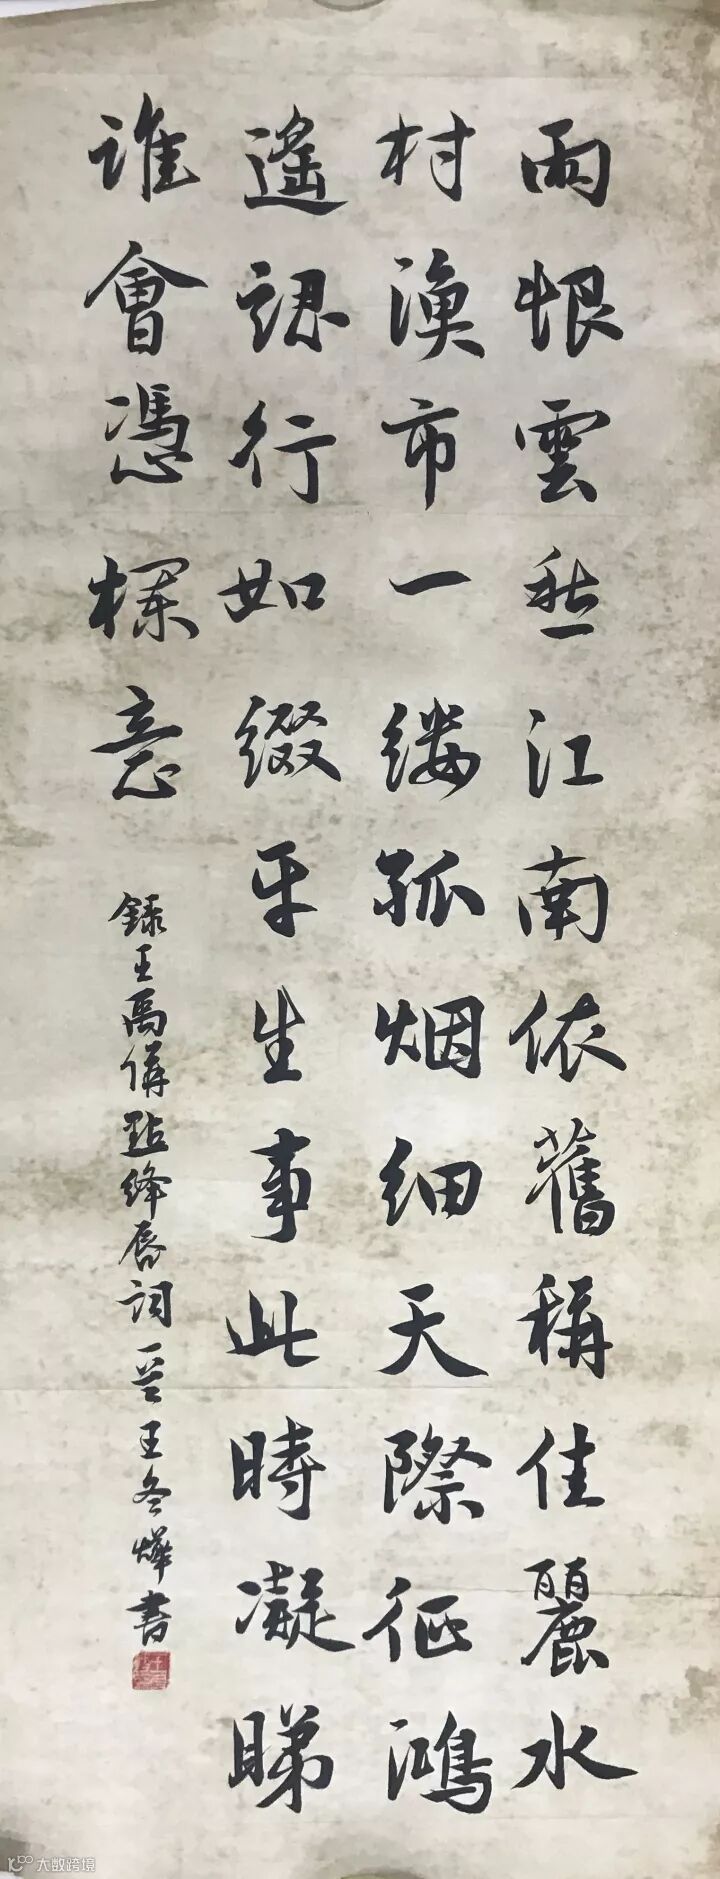 雨恨雲愁江南依舊稱佳麗水
村漁市一縷孤烟細天際征鴻
遙認行如綴平生事此時凝睇
誰會憑欄意
錄王禹偁點絳唇詞 王冬燁書
大数跨境